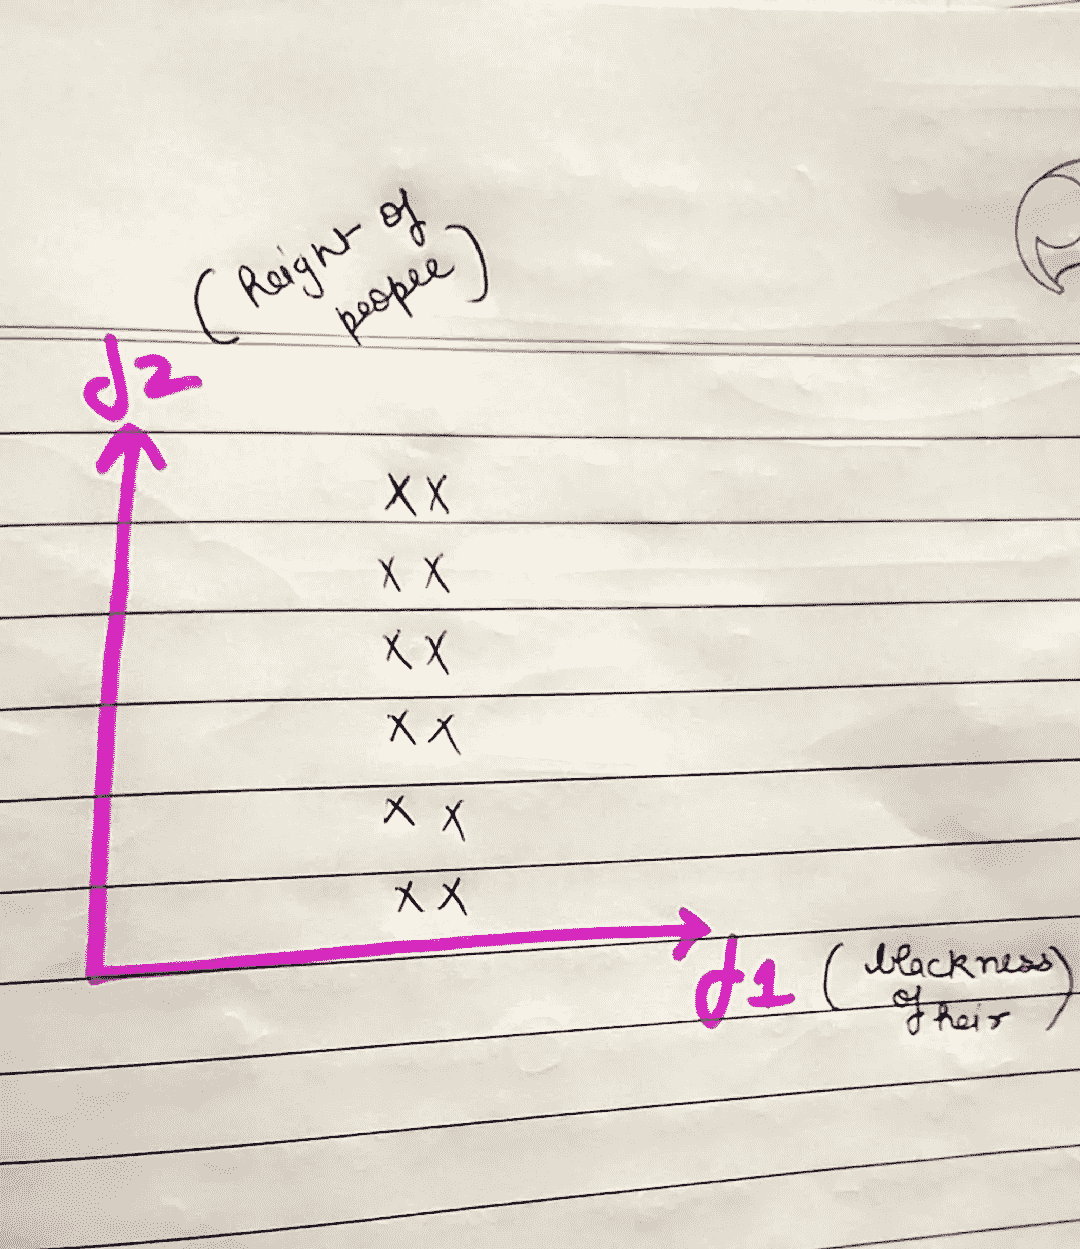 (height of
people)
d2
X X
X X
X X
X X
X X
X X
d1 (blackness
of heir)